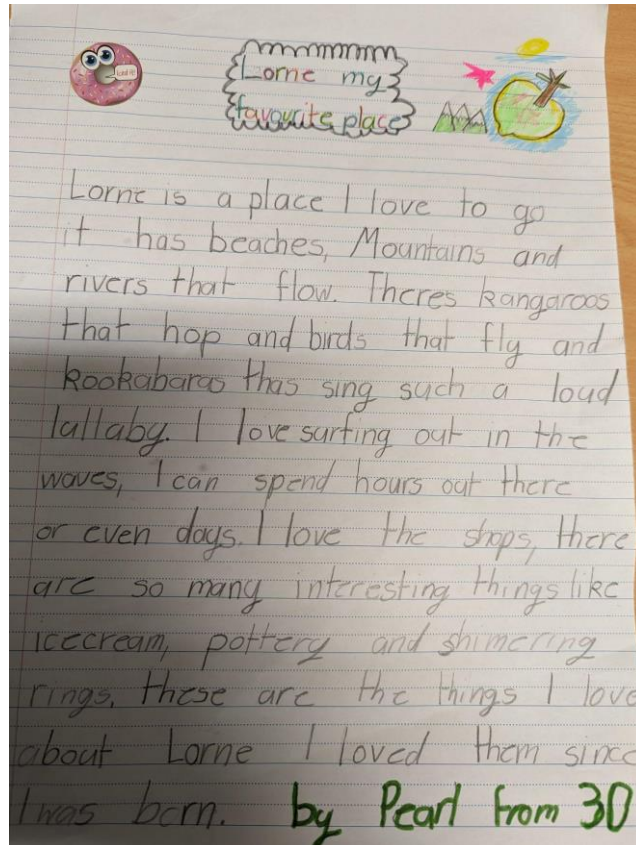 Lorne my
favourite place
Lorne is a place I love to go
it has beaches, Mountains and
rivers that flow. Theres kangaroos
that hop and birds that fly and
kookabaras thas sing such a loud
lallaby. I love surfing out in the
waves, I can spend hours out there
or even days. I love the shops, there
are so many interesting things like
icecream, pottery and shimering
rings, these are the things I love
about Lorne I loved them since
I was born. by Pearl from 3D